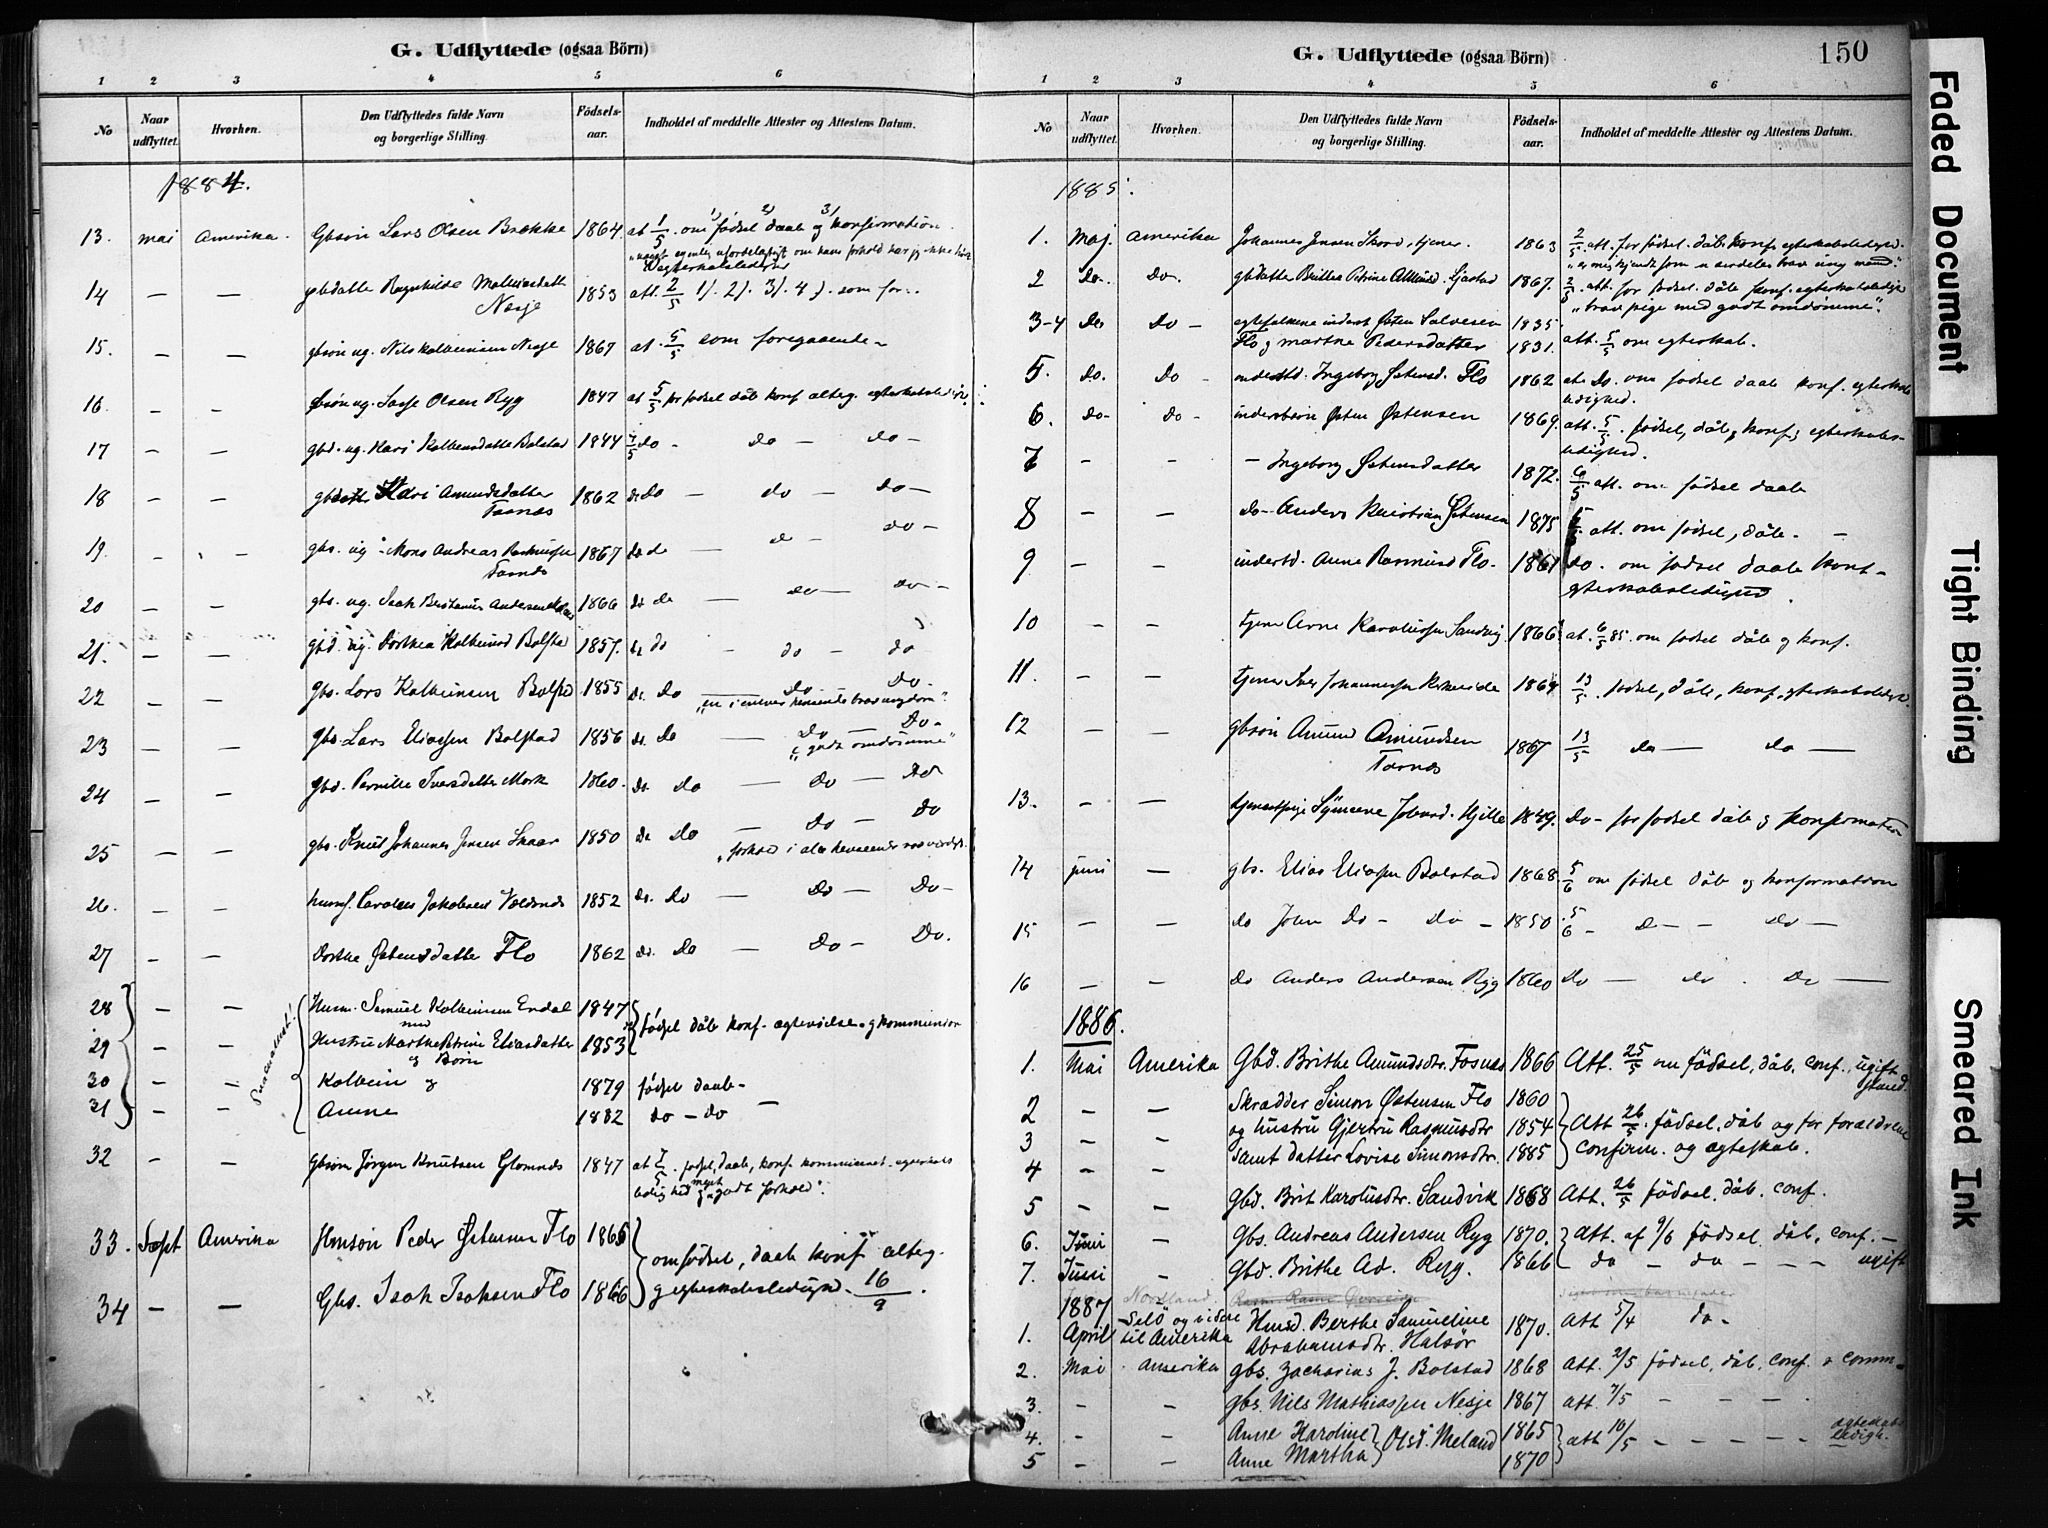 G. Udflyttede (ogsaa Börn)
1 2 3 4 5 6
No Naar udflyttet. Hvorhen. Den Udflyttedes fulde Navn og borgerlige Stilling. Födsels-aar. Indholdet af meddelte Attester og Attestens Datum.
1884.
13. mai Amerika. Gbsøn Lars Olsen Brække 1864. at 1/5 om 1) fødsel 2) daab 3) og konfirmation.
14 — — Ragnhilde Nesje 1853 att. 2/5 1). 2). 3). 4). som for..
15. — — gbsøn ug. Nils Kolbeinsen Nesje 1867 at. 5/5 som foregaaende –
16 — — Olsen Ryg 1847 at 5/5 for fødsel dåb konf. alterg. egteskabsledighed
17 — — gbd. ug. Kari Kolbeinsdatter Bolstad 1844 7/5 do – do – do –
18 — — Kari Amundsdatter Taanæs 1862 do do — do — do —
19. — — gbs. ug. Mons Andreas Rasmussen 1867 do d — d — do –
20 — — gbs. ug. Isak Andersen 1866 do do — do — do –
21. — — gbd. ug. Dorthea Kolbeinsd Bolsta 1857. do do – do – do
22 — — gbs. Lars Kolbeinsen Bolsta 1855 do. do — do do.
23 — — gbs. Lars Eliassen Bolstad 1856 do. do — do — do–
„godt omdømme"
24 — — gbd. Pernille Iversdatter Mork 1860. do. do — do — do
25 — — gbs. Knud Johannes Jensen Skaar 1850 do do — do — do
26. — — Jakobsen 1852 do. do — do — do–
27 — — Dorthe Østensdatter Flo 1862 do. do — do – do.
28 — — Husm. Samuel Kolbeinsen Endal 1847 fødsel dåb konf. egtevielse og kommunion
med
29 — — Hustru Marthe Petrine Eliasdatter 1853
og Børn
30 — — Kolbein og 1879 fødsel daab–
31 — — Anne 1882 do – do —
32 — — Gbsøn Jörgen Knutsen Glomnæs 1847 at 7/5. fødsel, daab, konf. egteskabs
ledighed „godt forhold".
33. Sept Amerika Hmsøn Peder Østensen Flo 1866 om fødsel, daab konf alterg.
34 — — Gbs. Isak Isaksen Flo 1866 og egteskabsledighed. 16/9.
G. Udflyttede (ogsaa Börn) 150
1 2 3 4 5 6
No Naar udflyttet. Hvorhen. Den Udflyttedes fulde Navn og borgerlige Stilling. Födsels-aar. Indholdet af meddelte Attester og Attestens Datum.
1885.
1. Maj. Amerika Johannes Jensen tjener. 1863 2/5. att. for fødsel. dåb. konf. egteskabsledighed.
2 Do. Do. gbdatter Petrine 1867. 2/5. att. for fødsel. dåb konf. egteskabsledighed
„brav pige med godt omdømme".
3–4 Do Do – egtefolkene inderst Østen Salvesen 1835.
Flo og Marthe Pedersdatter 1831. att. 5/5 om egteskab.
5. Do. Do – Ingeborg Østensd. Flo 1862 at. Do. om fødsel daab konf. egteskabs
ledighed.
6. Do– Do– inderstsøn Østen Østensen 1869. att. 5/5. fødsel, dåb, konf, egteskabs–
ledighed.
7 – – – Ingeborg Østensdatter 1872. 6/5 att. om fødsel daab
8 — — do– Anders Kristian Østensen 1875 att. om fødsel, dåb. –
9 — — inderstd. Anne Rasmusd Flo. 1861 do. om fødsel daab konf–
egteskabsledighed.
10 – – tjener Arne Karolussen Sandvig 1866 at. 6/5 85. om fødsel dåb og konf.
11. – — tjener Iver Johannessen 1864 13/5. fødsel, dåb, konf, egteskabsledigh.
12 — — gbsøn Amund Amundsen 1867 13/5 do — do —
13. – — tjenestpige 1849. Do – for fødsel dåb og konfirmation
14 juni — gbs. Elias Eliassen Bolstad 1868 5/6 om fødsel dåb og konformation
15 – — do John do – do – 1850 5/6 – d – – do —
16 – – Do Anders Andersen Ryg 1860 Do — do . Do —
1886.
1. Mai Amerika Gbd. Brithe Amundsdtr. Fosnæs 1866 Att. 25/5 om födsel, dåb, conf., ugift
stand.
2 – – Skrædder Simon Østensen Flo 1860
3 – – og hustru Gjertru Rasmusdtr 1854 Att 26/5. födsel, dåb og for forældrene
4 – – samt datter Lovise Simonsdtr. 1885 confirm. og ægteskab.
5 – – Gbd. Brit Karolusdtr. Sandvik 1868 Att. 26/5 födsel. dåb. conf.
6. Juni – Gbs. Andreas Andersen Ryg 1870. Att. af 9/6 födsel. dåb, conf. –
7. Juni – Gbd. Brithe Ad. Ryg. 1866 – do – do – – – ugift
1887 Nordland.
1. April Selö og videre til Amerika Hmsd. Berthe Samueline Abrahamsdtr. Halsør 1870. Att 5/4 do–
2. Mai Amerika gbs. Zacharias J. Bolstad 1868 Att. 2/5 födsel, dåb, conf. & comm–
3. – – gbs. Nils Mathiassen Nesje 1867 att. 7/5 – – – –
4. – – Anne Karoline Olsd. Meland 1865 att 10/5 – – – – –
5 – – Anne Martha 1870 ledigh.
Faded Document
Tight Binding
Smeared Ink